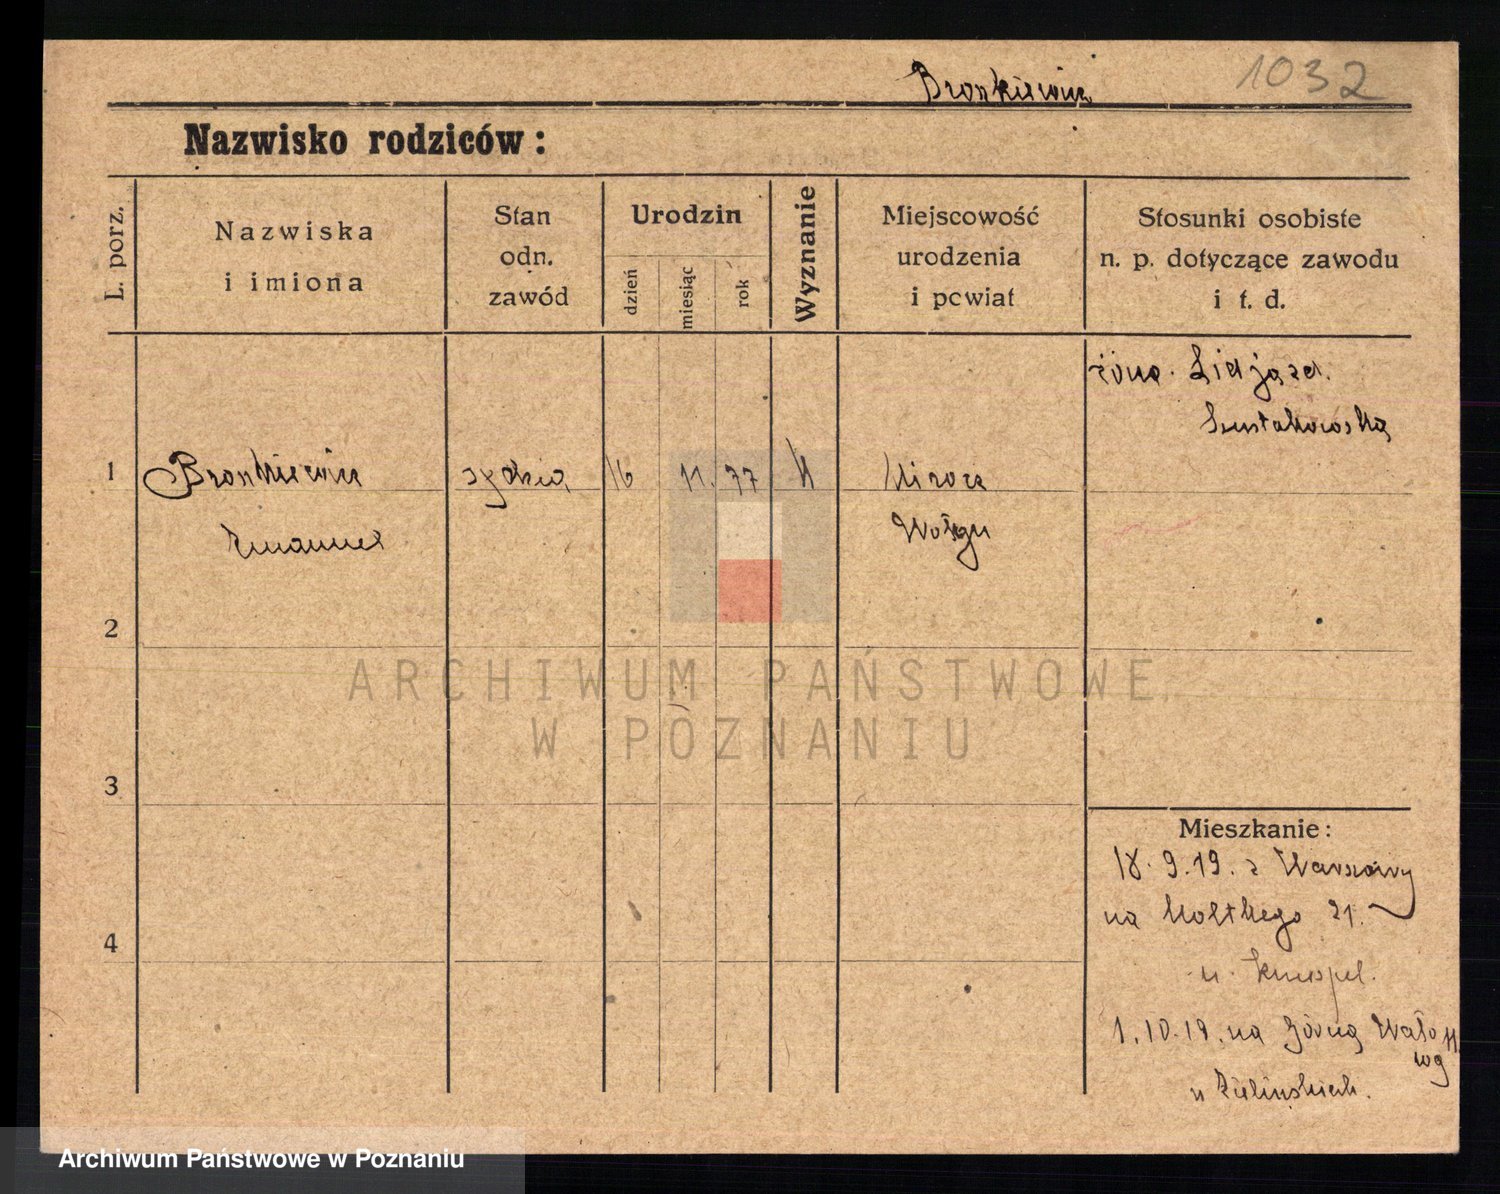 Bronkiewicz 1032
Nazwisko rodziców:
L. porz.
Nazwiska
i imiona
Stan
odn.
zawód
Urodzin
dzień
miesiąc
rok
Wyznanie
Miejscowość
urodzenia
i powiat
Stosunki osobiste
n. p. dotyczące zawodu
i t. d.
żona.
1 Bronkiewicz 16 11. 77
Emanuel
Wołyń
2
3
4
Mieszkanie:
18. 9. 19. z Warszawy
na Moltkego 21.
u
1. 10. 19. na Górną Wało
wą
u Zielińskich.
ARCHIWUM PAŃSTWOWE
W POZNANIU
Archiwum Państwowe w Poznaniu